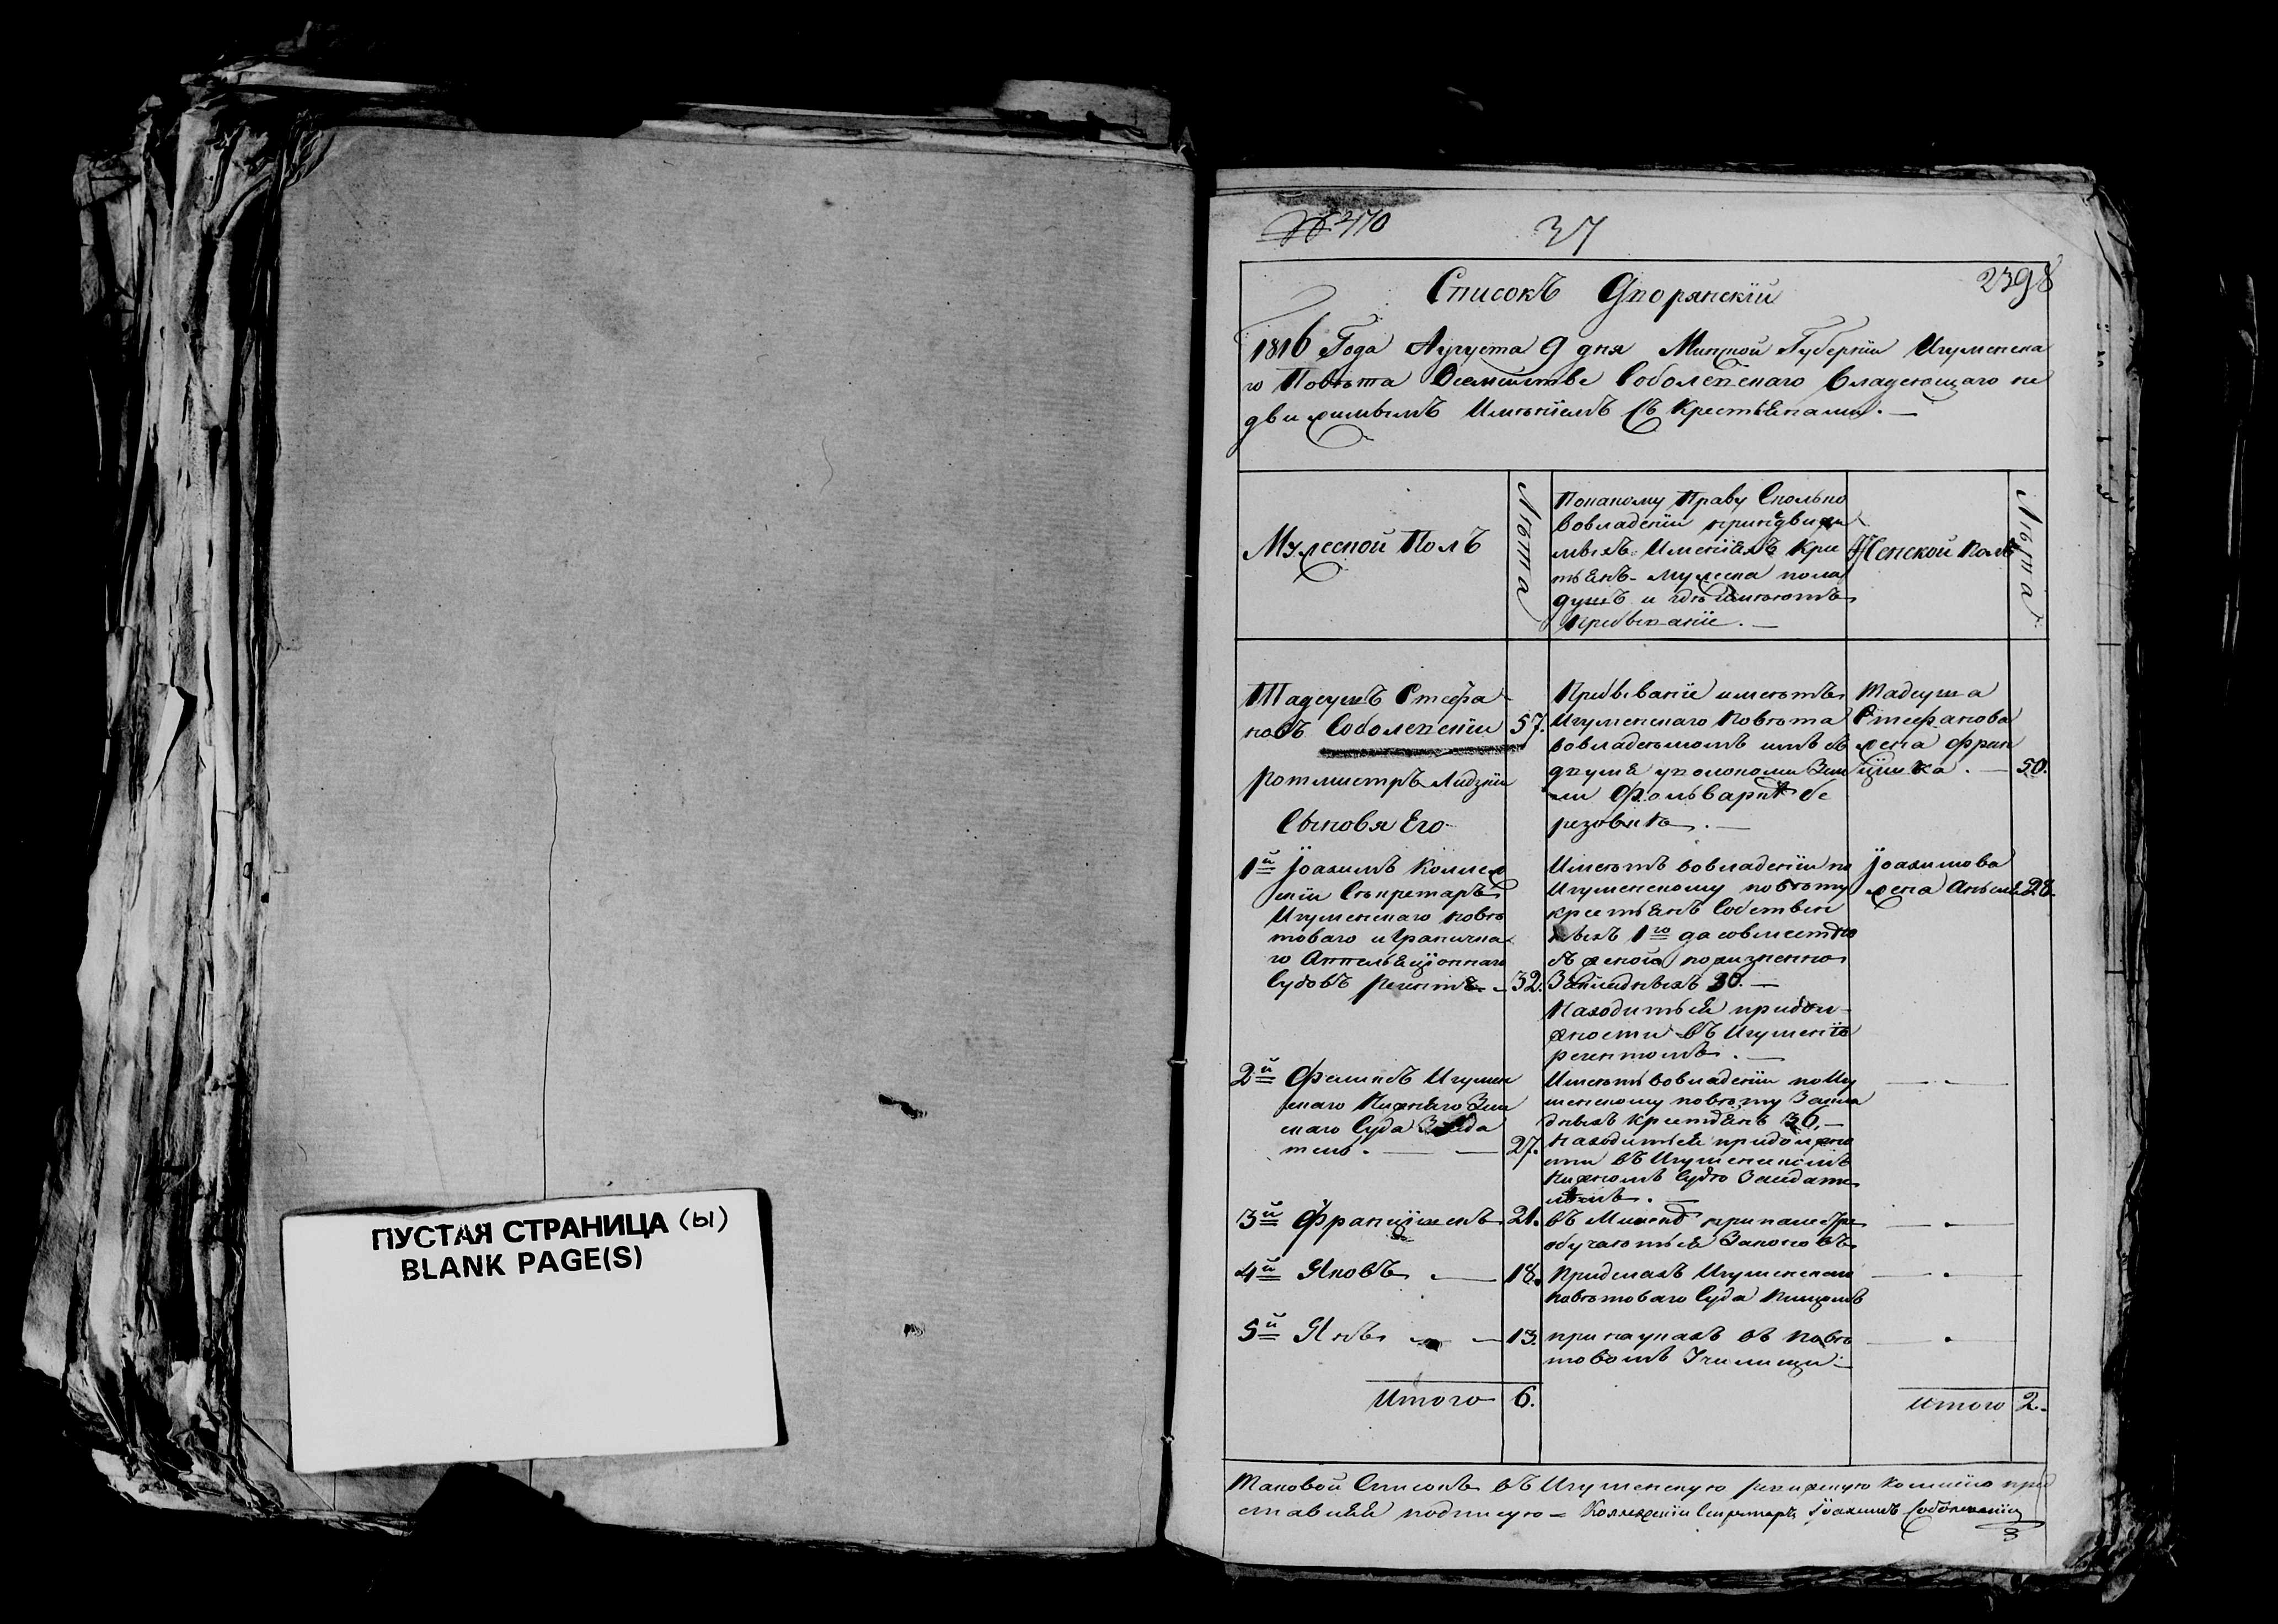 ПУСТАЯ СТРАНИЦА (ы)
BLANK PAGE(S)
№ 470
37
2398
Списокъ Дворянскїй
1816 Года Августа 9 дня Минской Губернїи Игуменска
го Повѣта Осемействе Соболевскаго Владеющаго не
движимымъ Имѣнїемъ съ Крестьянами. —
Мужеской Полъ
Лѣта
Покакому Праву Сколько
вовладенїи принедвижи
мыхъ Именїяхъ Кре
тьянъ мужеска пола
душъ и где имеютъ
Пребыванїе. —
Женской Полъ
Лѣта
Тадеушъ Стефа
новъ Соболевскїй 57.
Ротмистръ Лидзкїй
Пребыванїе имеетъ
Игуменскаго Повѣта
вовладеемомъ имъ
Фольварке Бе
резовке. —
Тадеуша
Стефанова
жена Фран
цишка. — 50.
Сыновья Его
1й Іоахимъ Коллеж
скїй Секретаръ
Игуменскаго повѣ
товаго и Гранична
го Аппеляцїоннаго
Судовъ Регентъ — 32.
Имеетъ вовладенїи по
Игуменскому повѣту
крестьянъ Собствен
ныхъ 1го да совместно
съ женою пожизненно
30. —
Находиться придол
жности въ Игумене
регентомъ. —
Іоахимова
жена 28.
2й Феликсъ Игумен
скаго Нижняго Зем
скаго Суда Заседа
тель. — 27.
Имеетъ вовладенїи поИгу
менскому повѣту
крестьянъ 36. —
находиться придолжно
сти въ Игуменскомъ
Нижномъ Суде Заседате
лемъ. —
3й Францишекъ 21.
въ Минске при палестре
обучаються Законовъ
4й Яковъ. — 18.
Приделахъ Игуменскаго
повѣтоваго Суда Писцомъ
5й Янъ — 13.
принаукахъ въ повѣ
товомъ Училищи —
Итого 6.
Итого 2.
Таковой Списокъ въ Игуменскую Ревижскую Комисїю пред
ставляя подписую — Коллежскїй Секретарь Іоахимъ Соболевскїй